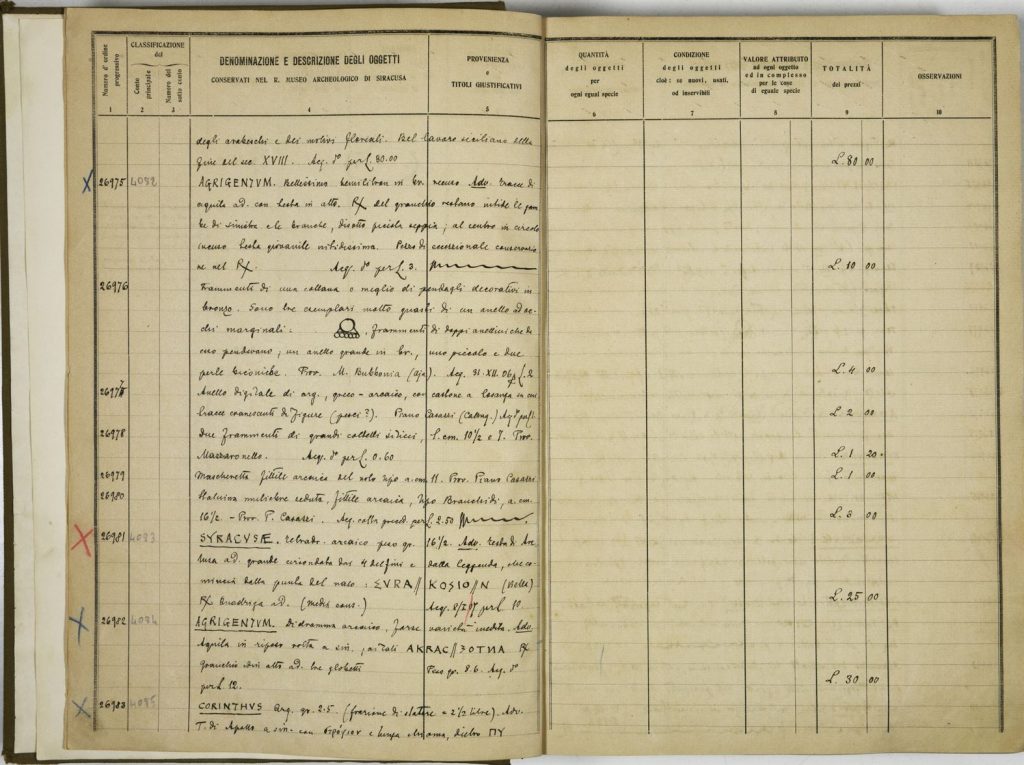 Numero d'ordine progressivo
CLASSIFICAZIONE
del
Conto principale
Numero del sotto conto
DENOMINAZIONE E DESCRIZIONE DEGLI OGGETTI
CONSERVATI NEL R. MUSEO ARCHEOLOGICO DI SIRACUSA
PROVENIENZA
e
TITOLI GIUSTIFICATIVI
QUANTITÀ
degli oggetti
per
ogni egual specie
CONDIZIONE
degli oggetti
cioè: se nuovi, usati,
od inservibili
VALORE ATTRIBUITO
ad ogni oggetto
ed in complesso
per le cose
di eguale specie
TOTALITÀ
dei prezzi
OSSERVAZIONI
1 2 3 4 5 6 7 8 9 10
degli arabeschi e dei motivi floreali. Bel lavoro siciliano della
fine del sec. XVIII. Acq. to per £. 80.00 L. 80 00
26975 4032 AGRIGENTVM. Bellissimo hemilitron in br. Adv. tracce di
aquila ad. con testa in alto. Rx del granchio restano nitide le gam
be di sinistra e le branche, disotto piccola seppia; al centro in circolo
incuso testa giovanile nitidissima. Pezzo di eccezionale conservazio
ne nel Rx. Acq. to per £. 3. L. 10 00
26976 Frammenti di una collana o meglio di pendagli decorativi in
bronzo. Sono tre esemplari molto guasti di un anello ad oc-
chi marginali: , frammenti di doppi anellini che da
essi pendevano, un anello grande in br., uno piccolo e due
perle biconiche. Prov. M. Bubbonia (Aja). Acq. 31. XII. 06 L. 4 00
26977 Anello digitale di arg., greco-arcaico, con castone a losanga in cui
tracce evanescenti di figure (pesci?). Piano Casazzi L. 2 00
26978 Due frammenti di grandi coltelli silicei, l. cm. 10 1/2 e 7. Prov.
Mazzaronello. Acq. to per £. 0.60 L. 1 20
26979 Mascheretta fittile arcaica del noto tipo a. cm. 11. Prov. Piano Casazzi L. 1 00
26980 Statuina muliebre seduta, fittile arcaica, tipo Branchidi, a. cm.
16 1/2. - Prov. P. Casazzi. Acq. colla preced. per £. 2.50 L. 3 00
26981 4033 SYRACVSÆ. Tetradr. arcaico peso gr. 16 1/2. Adv. testa di Are
tusa ad. grande circondata da 4 delfini e dalla leggenda, che co
mincia dalla punta del naso: ΣVRA // KOSIO // N (Bella)
Rx Quadriga ad. (medio cons.) per £. 10 L. 25 00
26982 4034 AGRIGENTVM. Didramma arcaico, forse varietà inedita. Adv.
Aquila in riposo volta a sin., ai lati AKRAC // ƷOTMA Rx
Granchio con alto ad. tre globetti Peso gr. 8.6. Acq. to
per £. 12. L. 30 00
26983 4035 CORINTHVS Arg. gr. 2.5. (frazione di statere = 2 1/2 litre). Adv.
T. di Apollo a sin. con e lunga chioma, dietro ΠΥ